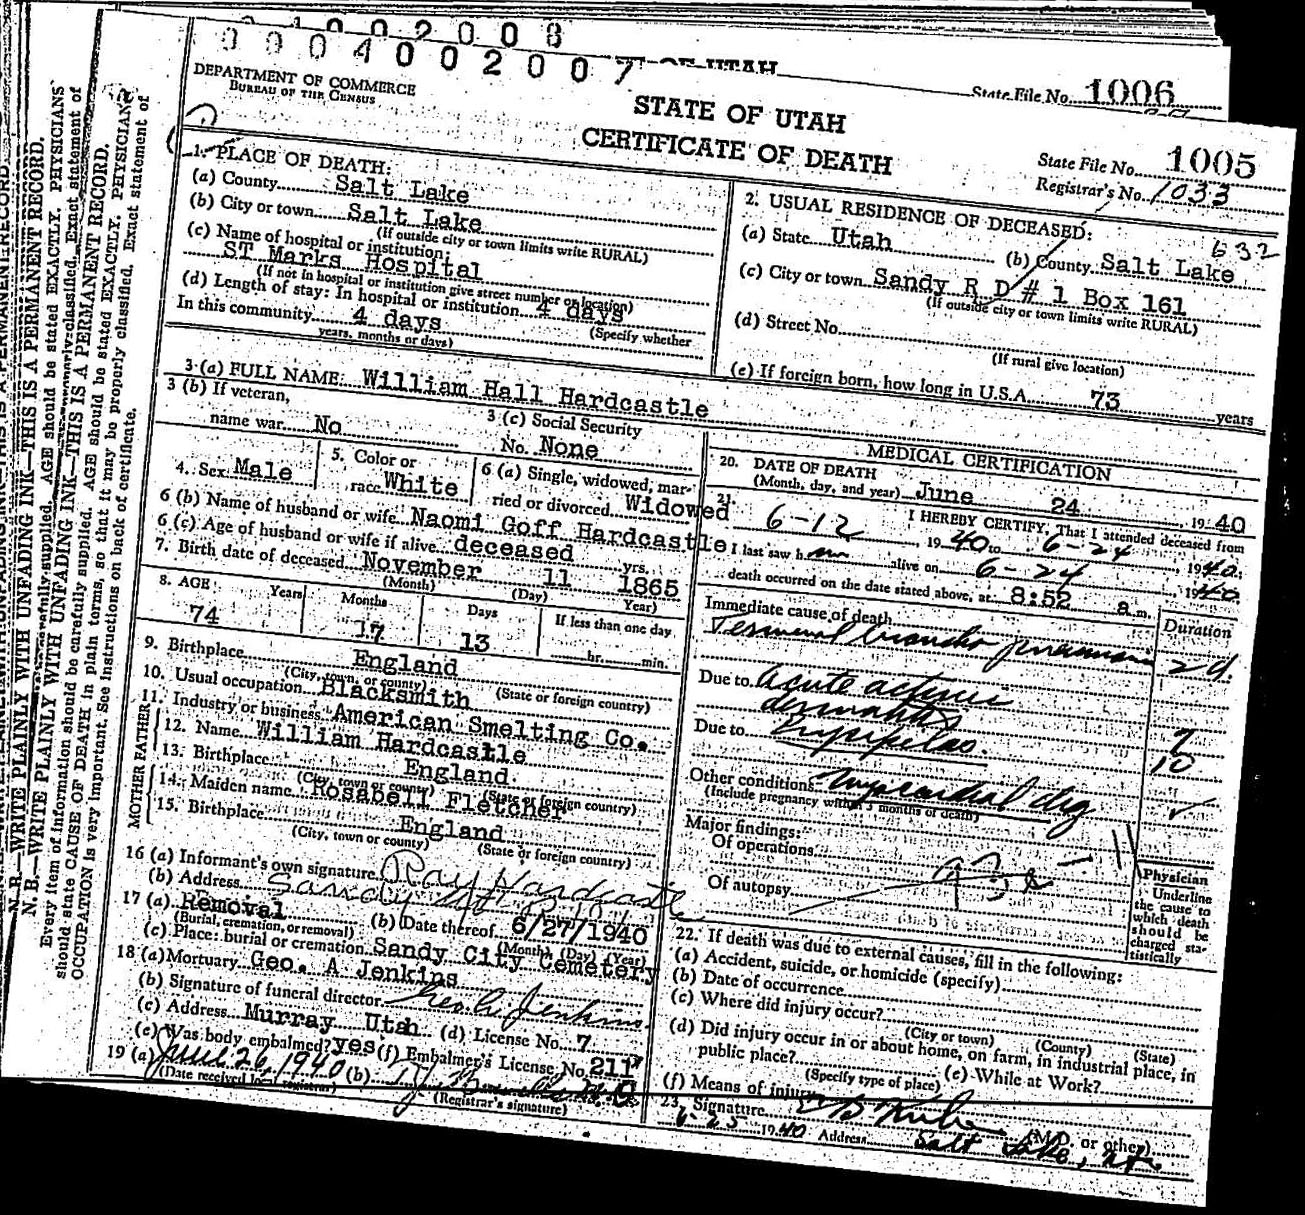 0 1 0 0 2 0 0 8
0 0 0 4 0 0 2 0 0 7
OF UTAH
State File No. 1006
DEPARTMENT OF COMMERCE
BUREAU OF THE CENSUS
STATE OF UTAH
CERTIFICATE OF DEATH
State File No. 1005
Registrar's No. 1033
1. PLACE OF DEATH:
(a) County Salt Lake
(b) City or town Salt Lake
(If outside city or town limits write RURAL)
(c) Name of hospital or institution:
ST Marks Hospital
(If not in hospital or institution give street number or location)
(d) Length of stay: In hospital or institution 4 days
(Specify whether
In this community 4 days
years, months or days)
2. USUAL RESIDENCE OF DECEASED:
632
(a) State Utah (b) County Salt Lake
(c) City or town Sandy R D # 1 Box 161
(If outside city or town limits write RURAL)
(d) Street No.
(If rural give location)
(e) If foreign born, how long in U.S.A. 73 years
3 (a) FULL NAME: William Hall Hardcastle
3 (b) If veteran,
name war No
3 (c) Social Security
No. None
4. Sex Male
5. Color or
race White
6 (a) Single, widowed, mar-
ried or divorced Widowed
6 (b) Name of husband or wife Naomi Goff Hardcastle
6 (c) Age of husband or wife if alive deceased yrs.
7. Birth date of deceased November 11 1865
(Month) (Day) Year)
8. AGE Years Months Days If less than one day
74 17 13 hr. min.
9. Birthplace England
(City, town, or county) (State or foreign country)
10. Usual occupation Blacksmith
11. Industry or business American Smelting Co.
FATHER
12. Name William Hardcastle
13. Birthplace England
(City, town or county) (State or foreign country)
MOTHER
14. Maiden name Rosabell Fletcher
15. Birthplace England
(City, town or county) (State or foreign country)
16 (a) Informant's own signature Ray Hardcastle
(b) Address Sandy
17 (a) Removal (b) Date thereof 6/27/1940
(Burial, cremation, or removal) (Month) (Day) (Year)
(c) Place: burial or cremation Sandy City Cemetery
18 (a) Mortuary Geo. A Jenkins
(b) Signature of funeral director Geo. A. Jenkins
(c) Address Murray Utah (d) License No. 7
(e) Was body embalmed? yes (f) Embalmer's License No. 211
19 (a) June 26, 1940 (b)
(Date received local registrar) (Registrar's signature)
MEDICAL CERTIFICATION
20. DATE OF DEATH
(Month, day, and year) June 24 1940
21. I HEREBY CERTIFY, That I attended deceased from
6-12 1940 to 6-24 1940.
I last saw him alive on 6-24 1940.
death occurred on the date stated above, at 8:52 a m.
Immediate cause of death Duration
Terminal broncho pneumonia 2 d.
Due to Acute actinic
dermatitis 7
Due to Erysipelas. 10
Other conditions Myocardial deg
(Include pregnancy within 3 months of death)
Major findings:
Of operations
Of autopsy
Physician
Underline
the cause to
which death
should be
charged sta-
tistically
22. If death was due to external causes, fill in the following:
(a) Accident, suicide, or homicide (specify)
(b) Date of occurrence
(c) Where did injury occur?
(City or town) (County) (State)
(d) Did injury occur in or about home, on farm, in industrial place, in
public place? (e) While at Work?
(Specify type of place)
(f) Means of injury
23. Signature (M.D. or other)
6-25 1940 Address Salt Lake, Ut.
N. B.—WRITE PLAINLY WITH UNFADING INK—THIS IS A PERMANENT RECORD.
Every item of information should be carefully supplied. AGE should be stated EXACTLY. PHYSICIANS
should state CAUSE OF DEATH in plain terms, so that it may be properly classified. Exact statement of
OCCUPATION is very important. See instructions on back of certificate.